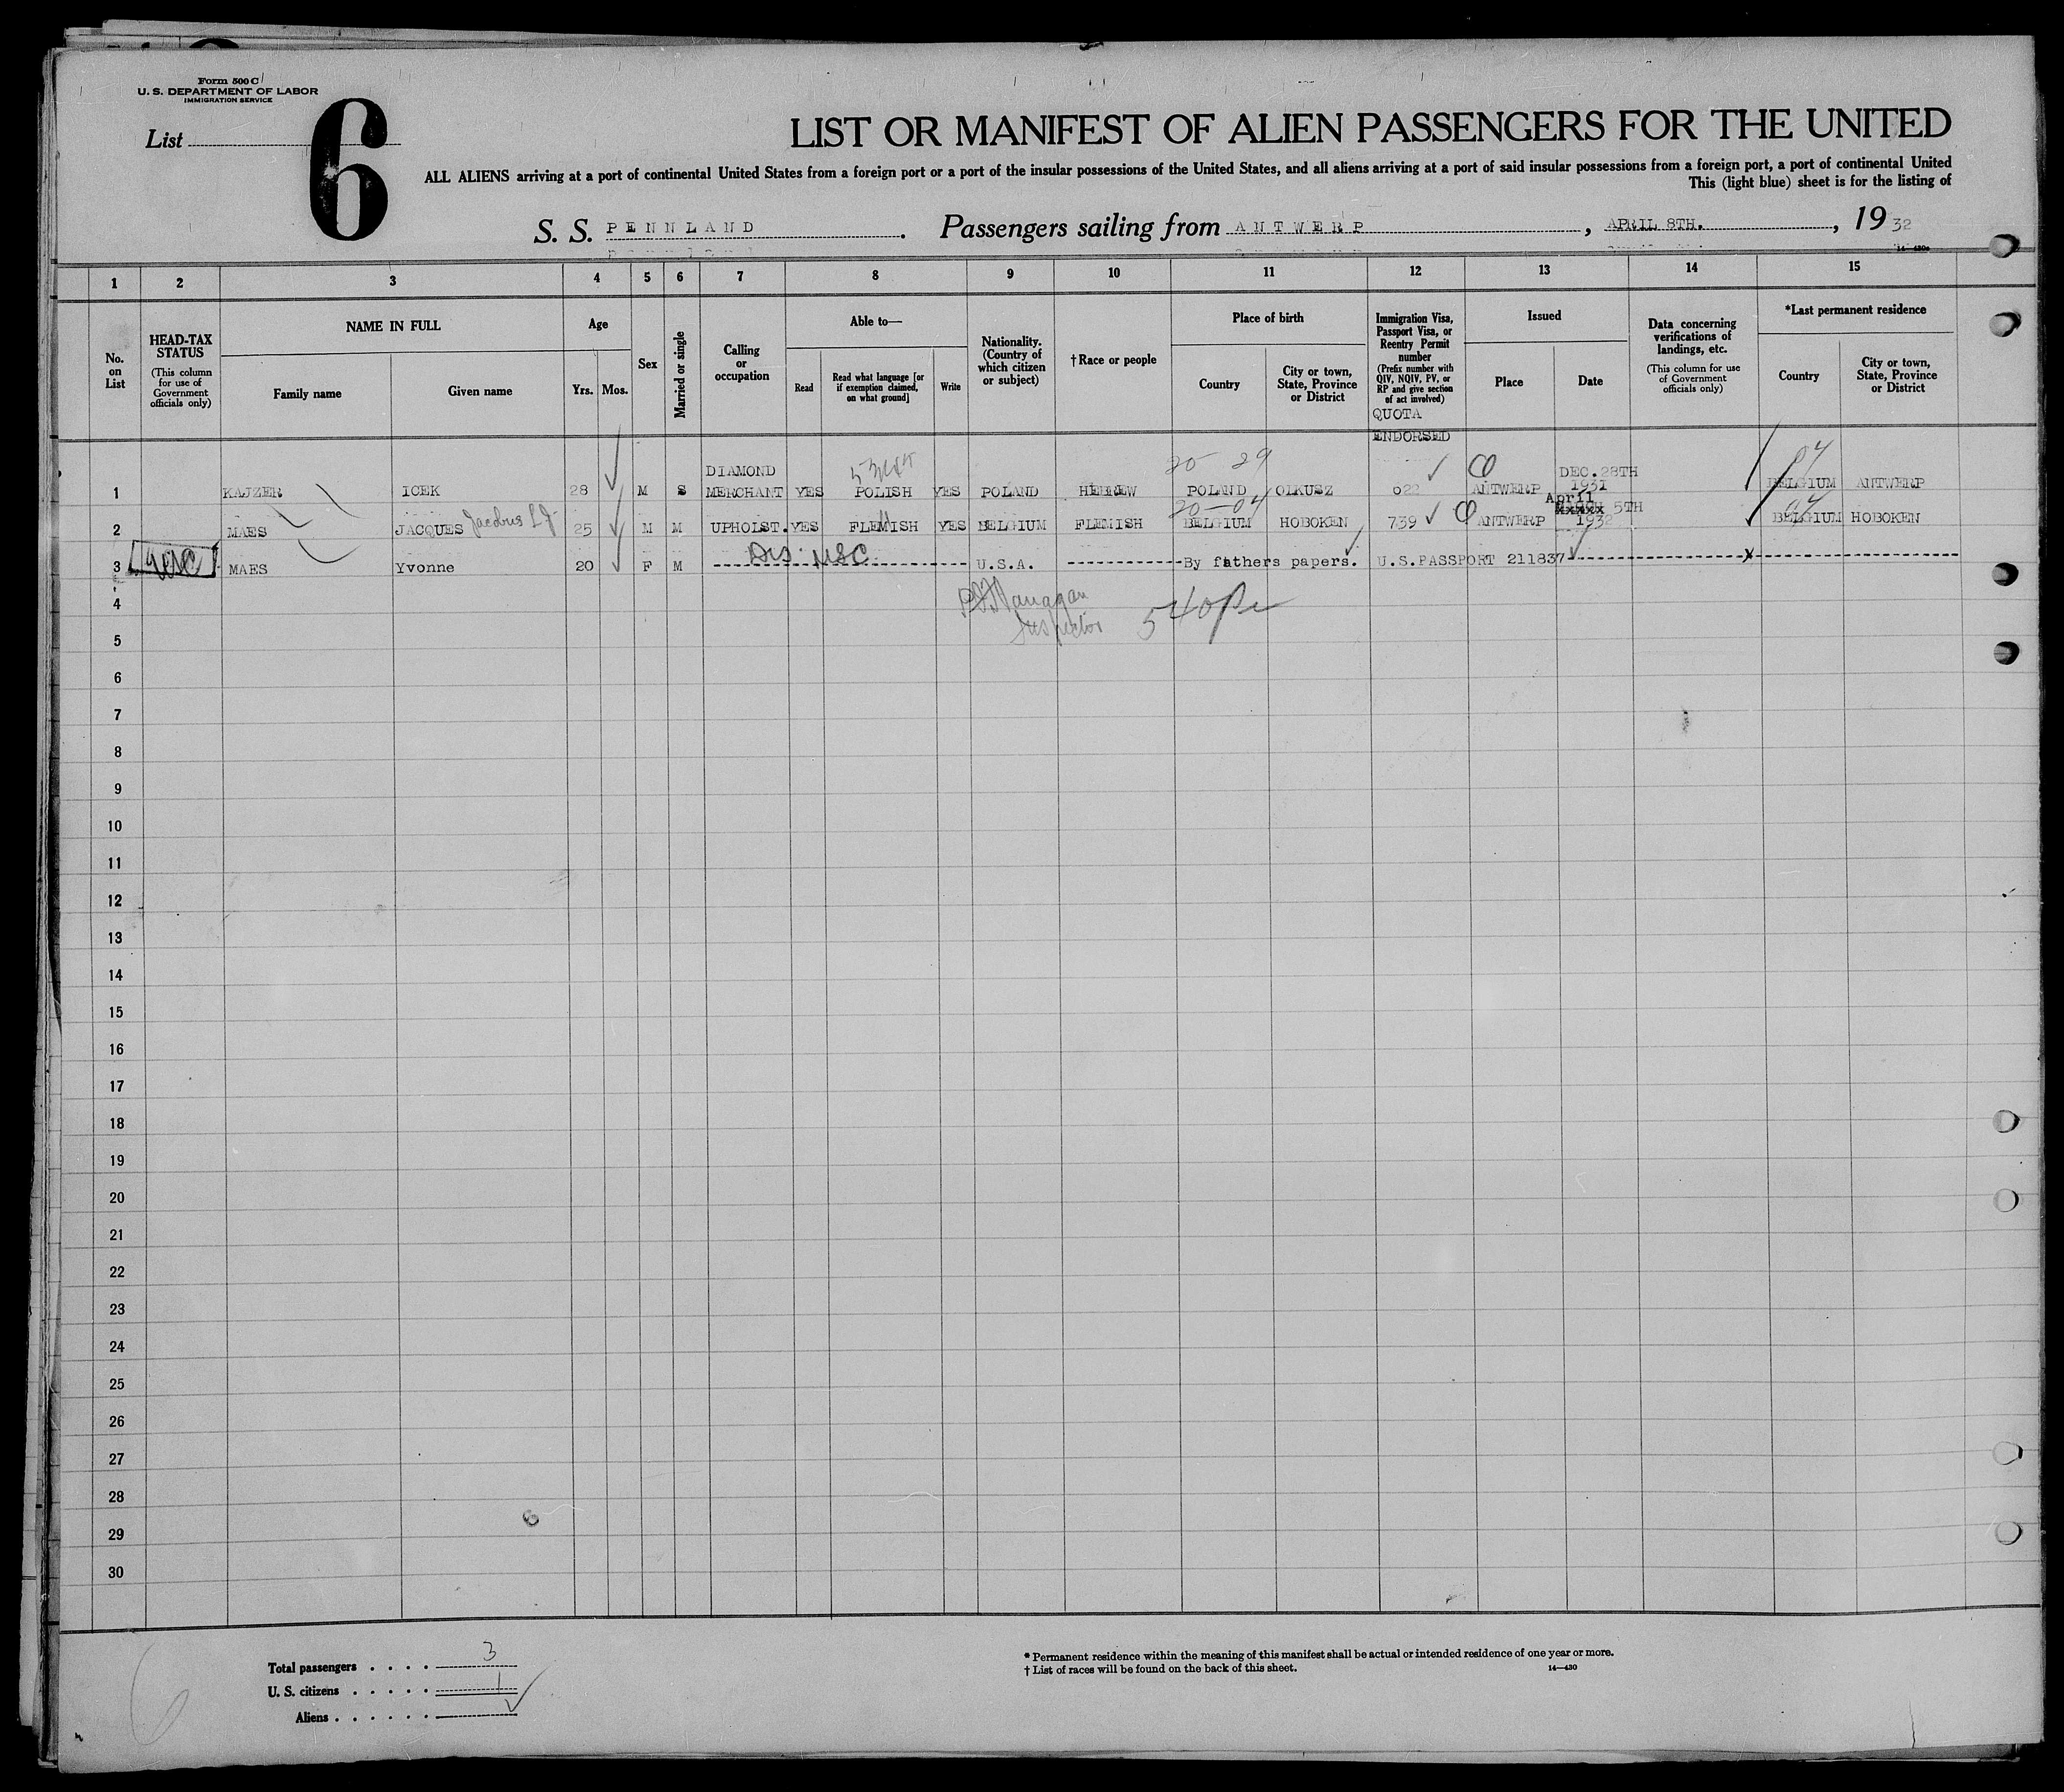 Form 500 C
U. S. DEPARTMENT OF LABOR
IMMIGRATION SERVICE
List
6
LIST OR MANIFEST OF ALIEN PASSENGERS FOR THE UNITED
ALL ALIENS arriving at a port of continental United States from a foreign port or a port of the insular possessions of the United States, and all aliens arriving at a port of said insular possessions from a foreign port, a port of continental United
This (light blue) sheet is for the listing of
S. S. PENNLAND. Passengers sailing from ANTWERP, APRIL 8TH., 1932
14—430a
1 2 3 4 5 6 7 8 9 10 11 12 13 14 15
No. on List
HEAD-TAX STATUS (This column for use of Government officials only)
NAME IN FULL
Family name
Given name
Age
Yrs. Mos.
Sex
Married or single
Calling or occupation
Able to—
Read
Read what language [or if exemption claimed, on what ground]
Write
Nationality. (Country of which citizen or subject)
† Race or people
Place of birth
Country
City or town, State, Province or District
Immigration Visa, Passport Visa, or Reentry Permit number (Prefix number with QIV, NQIV, PV, or RP and give section of act involved)
QUOTA
ENDORSED
Issued
Place
Date
Data concerning verifications of landings, etc. (This column for use of Government officials only)
*Last permanent residence
Country
City or town, State, Province or District
20 29
DIAMOND DEC.28TH
1 KAJZER ICEK 28 M S MERCHANT YES POLISH YES POLAND HEBREW POLAND OLKUSZ 622 ANTWERP 1931 BELGIUM ANTWERP
20-04 April
xxxxx 5TH
2 MAES JACQUES Jacobus L J. 25 M M UPHOLST. YES FLEMISH YES BELGIUM FLEMISH BELGIUM HOBOKEN 739 ANTWERP 1932 BELGIUM HOBOKEN
Dis. USC
3 USC MAES Yvonne 20 F M U.S.A. By fathers papers. U.S.PASSPORT 211837 x
Inspector
4
5
6
7
8
9
10
11
12
13
14
15
16
17
18
19
20
21
22
23
24
25
26
27
28
29
30
Total passengers . . . . 3
U. S. citizens . . . . . 1
Aliens . . . . . .
* Permanent residence within the meaning of this manifest shall be actual or intended residence of one year or more.
† List of races will be found on the back of this sheet.
14—430
6